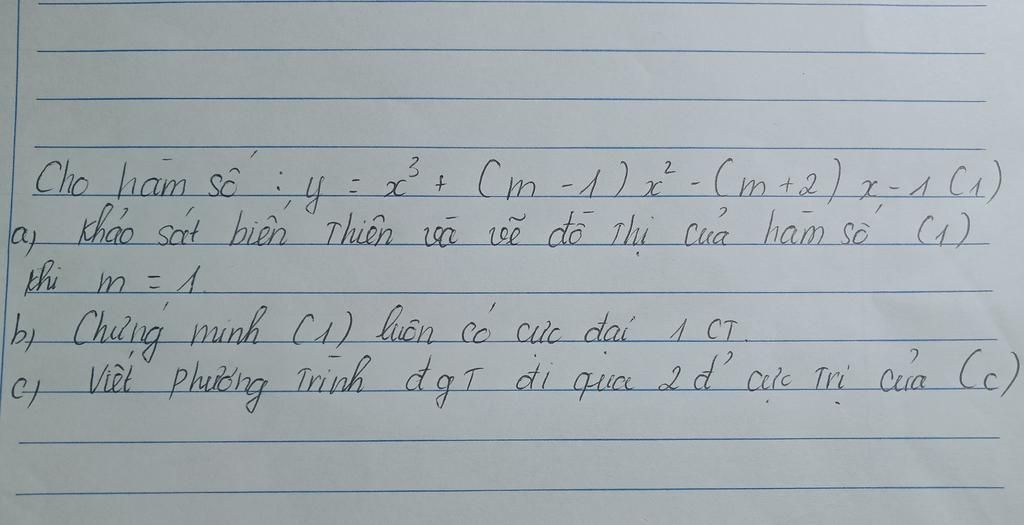 Cho hàm số : y = x³ + (m - 1) x² - (m + 2) x - 1 (1)
a) Khảo sát biến thiên và vẽ đồ thị của hàm số (1)
khi m = 1.
b) Chứng minh (1) luôn có cực đại 1 CT.
c) Viết phương trình đgT đi qua 2 đ' cực trị của (C)